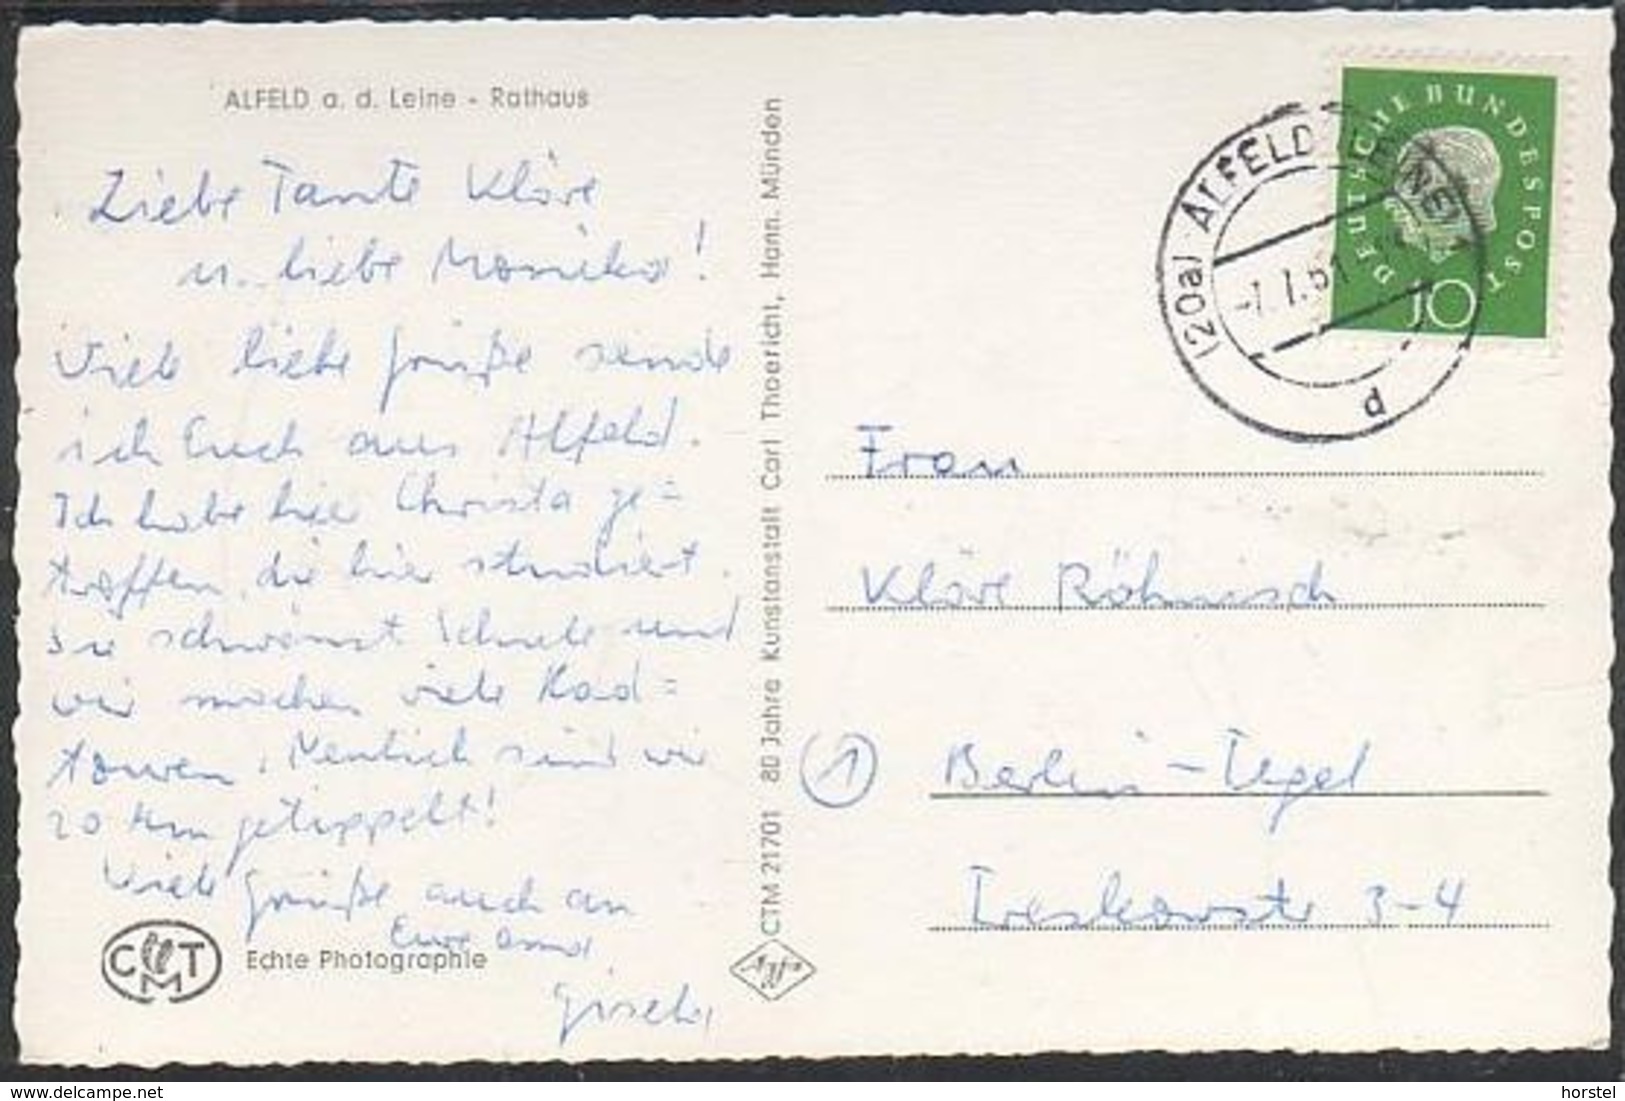 ALFELD a. d. Leine - Rathaus
Liebe Tante Kläre
u. liebe Monika!
Viele liebe Grüße sende
ich Euch aus Alfeld.
Ich habe hier Christa ge=
troffen, die hier studiert.
Sie schwänzt Schule und
wir machen viele Rad=
touren. Neulich sind wir
20 km getippelt!
Viele Grüße auch an
Eure
Gisela
CMT
Echte Photographie
CTM 21701 80 Jahre Kunstanstalt Carl Thoericht, Hann. Münden
Agfa
DEUTSCHE BUNDESPOST
10
(20a) ALFELD (LEINE)
-7.7.61
d
Frau
Kläre Röhnisch
1 Berlin-Tegel
Treskowstr 3-4
delcampe.net
horstel